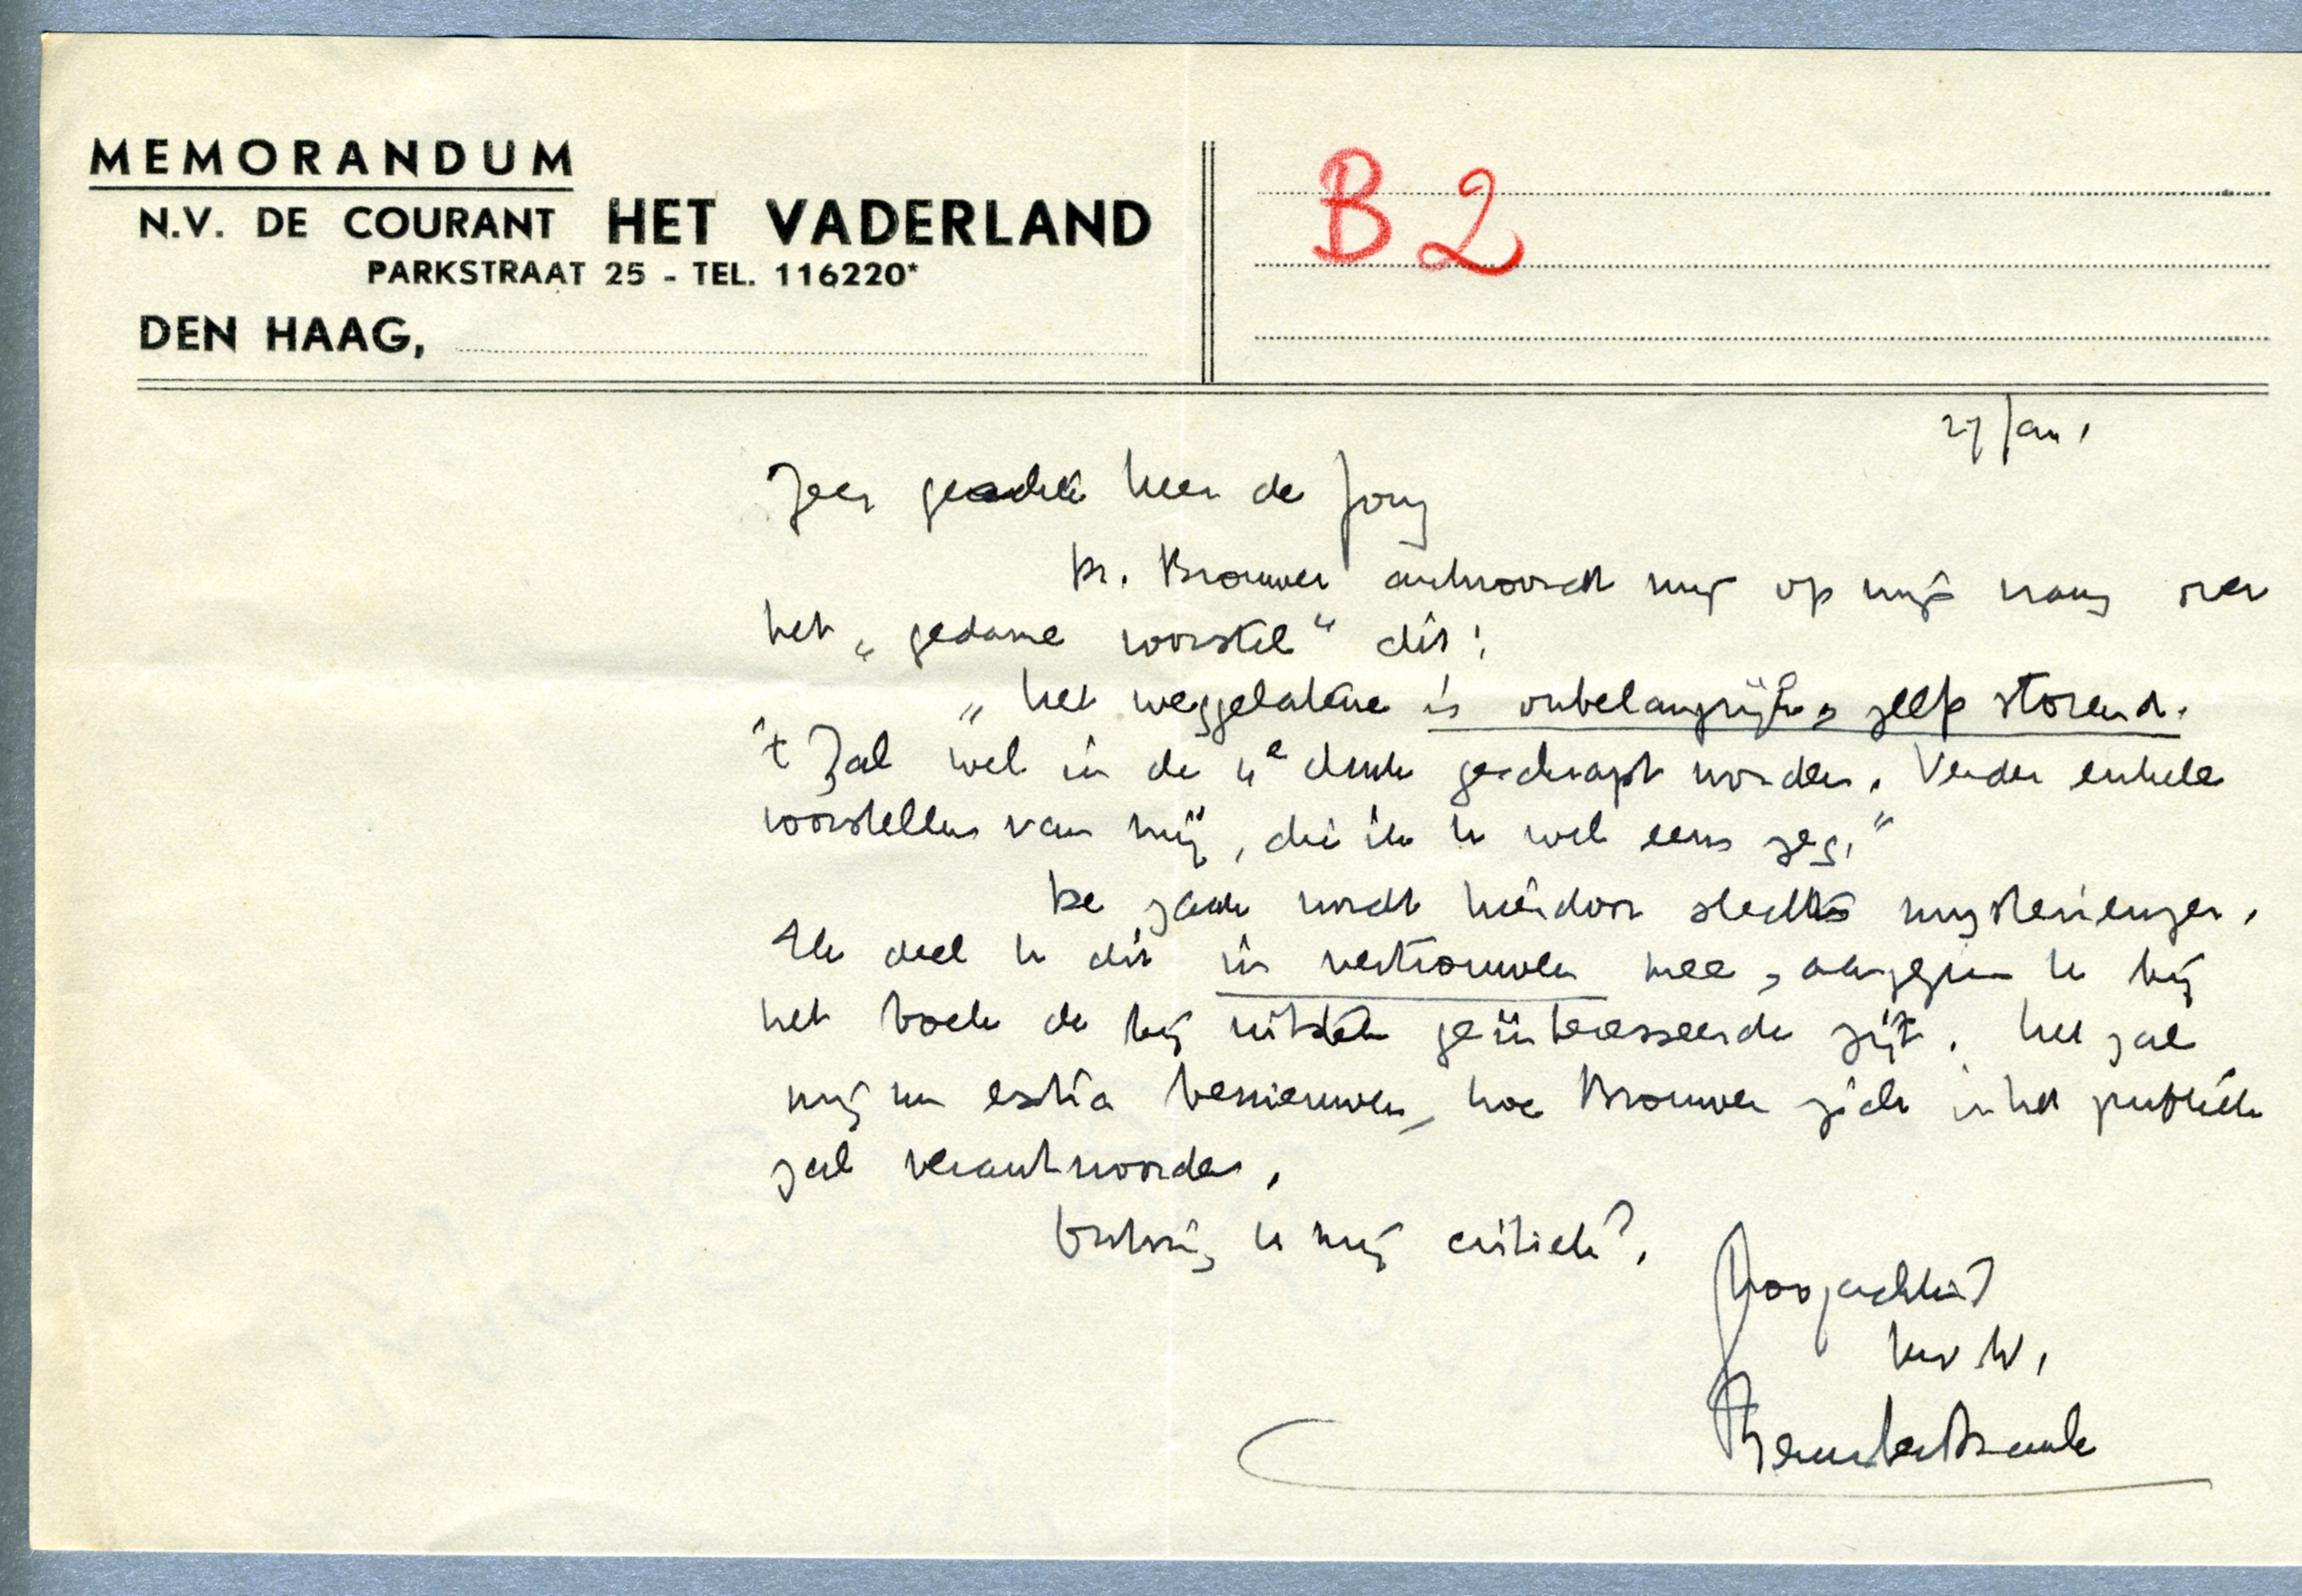 MEMORANDUM
N.V. DE COURANT HET VADERLAND
PARKSTRAAT 25 - TEL. 116220*
DEN HAAG,
B 2
27 Jan.
Zeer geachte heer de Jong
Dr. Brouwer antwoordt mij op mijn vraag over
het „gedane voorstel" dit:
„Het weggelatene is onbelangrijk, zelfs storend.
't Zal wel in de 4e druk geschrapt worden. Verder enkele
voorstellen van mij, die ik u wel eens zeg."
De zaak wordt hierdoor slechts mysterieuzer.
Ik deel u dit in vertrouwen mee, aangezien u bij
het boek de bij uitstek geïnteresseerde zijt. Het zal
mij nu extra benieuwen, hoe Brouwer zich in het publiek
zal verantwoorden.
Ontving u mijn critiek?
Hoogachtend
Uw dw.
Menno ter Braak